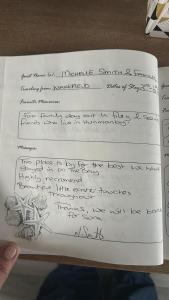 Guest Name(s): MICHELLE SMITH &
Travelling from: WAKEFIELD Dates of Stay:
Favourite Memories:
Fun family days out in Filey & Seeing
friends who live in Hunmanby!
Messages:
This place is by far the best we have
stayed in on the Bay
Highly recommend
Beautiful little coaster touches
Throughout
Thanks, we will be back
for sure.